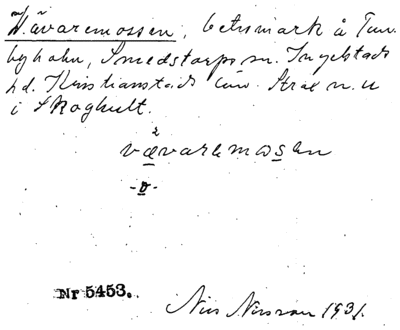 Wävaremossen, betesmark å Tun-
byholm, Smedstorps sn. Ingelstads
hd. Kristianstads län. Strax n. u
i Skoghult.
vævaremosen
-o-
Nr 5453.
Nils Nilsson 1931.